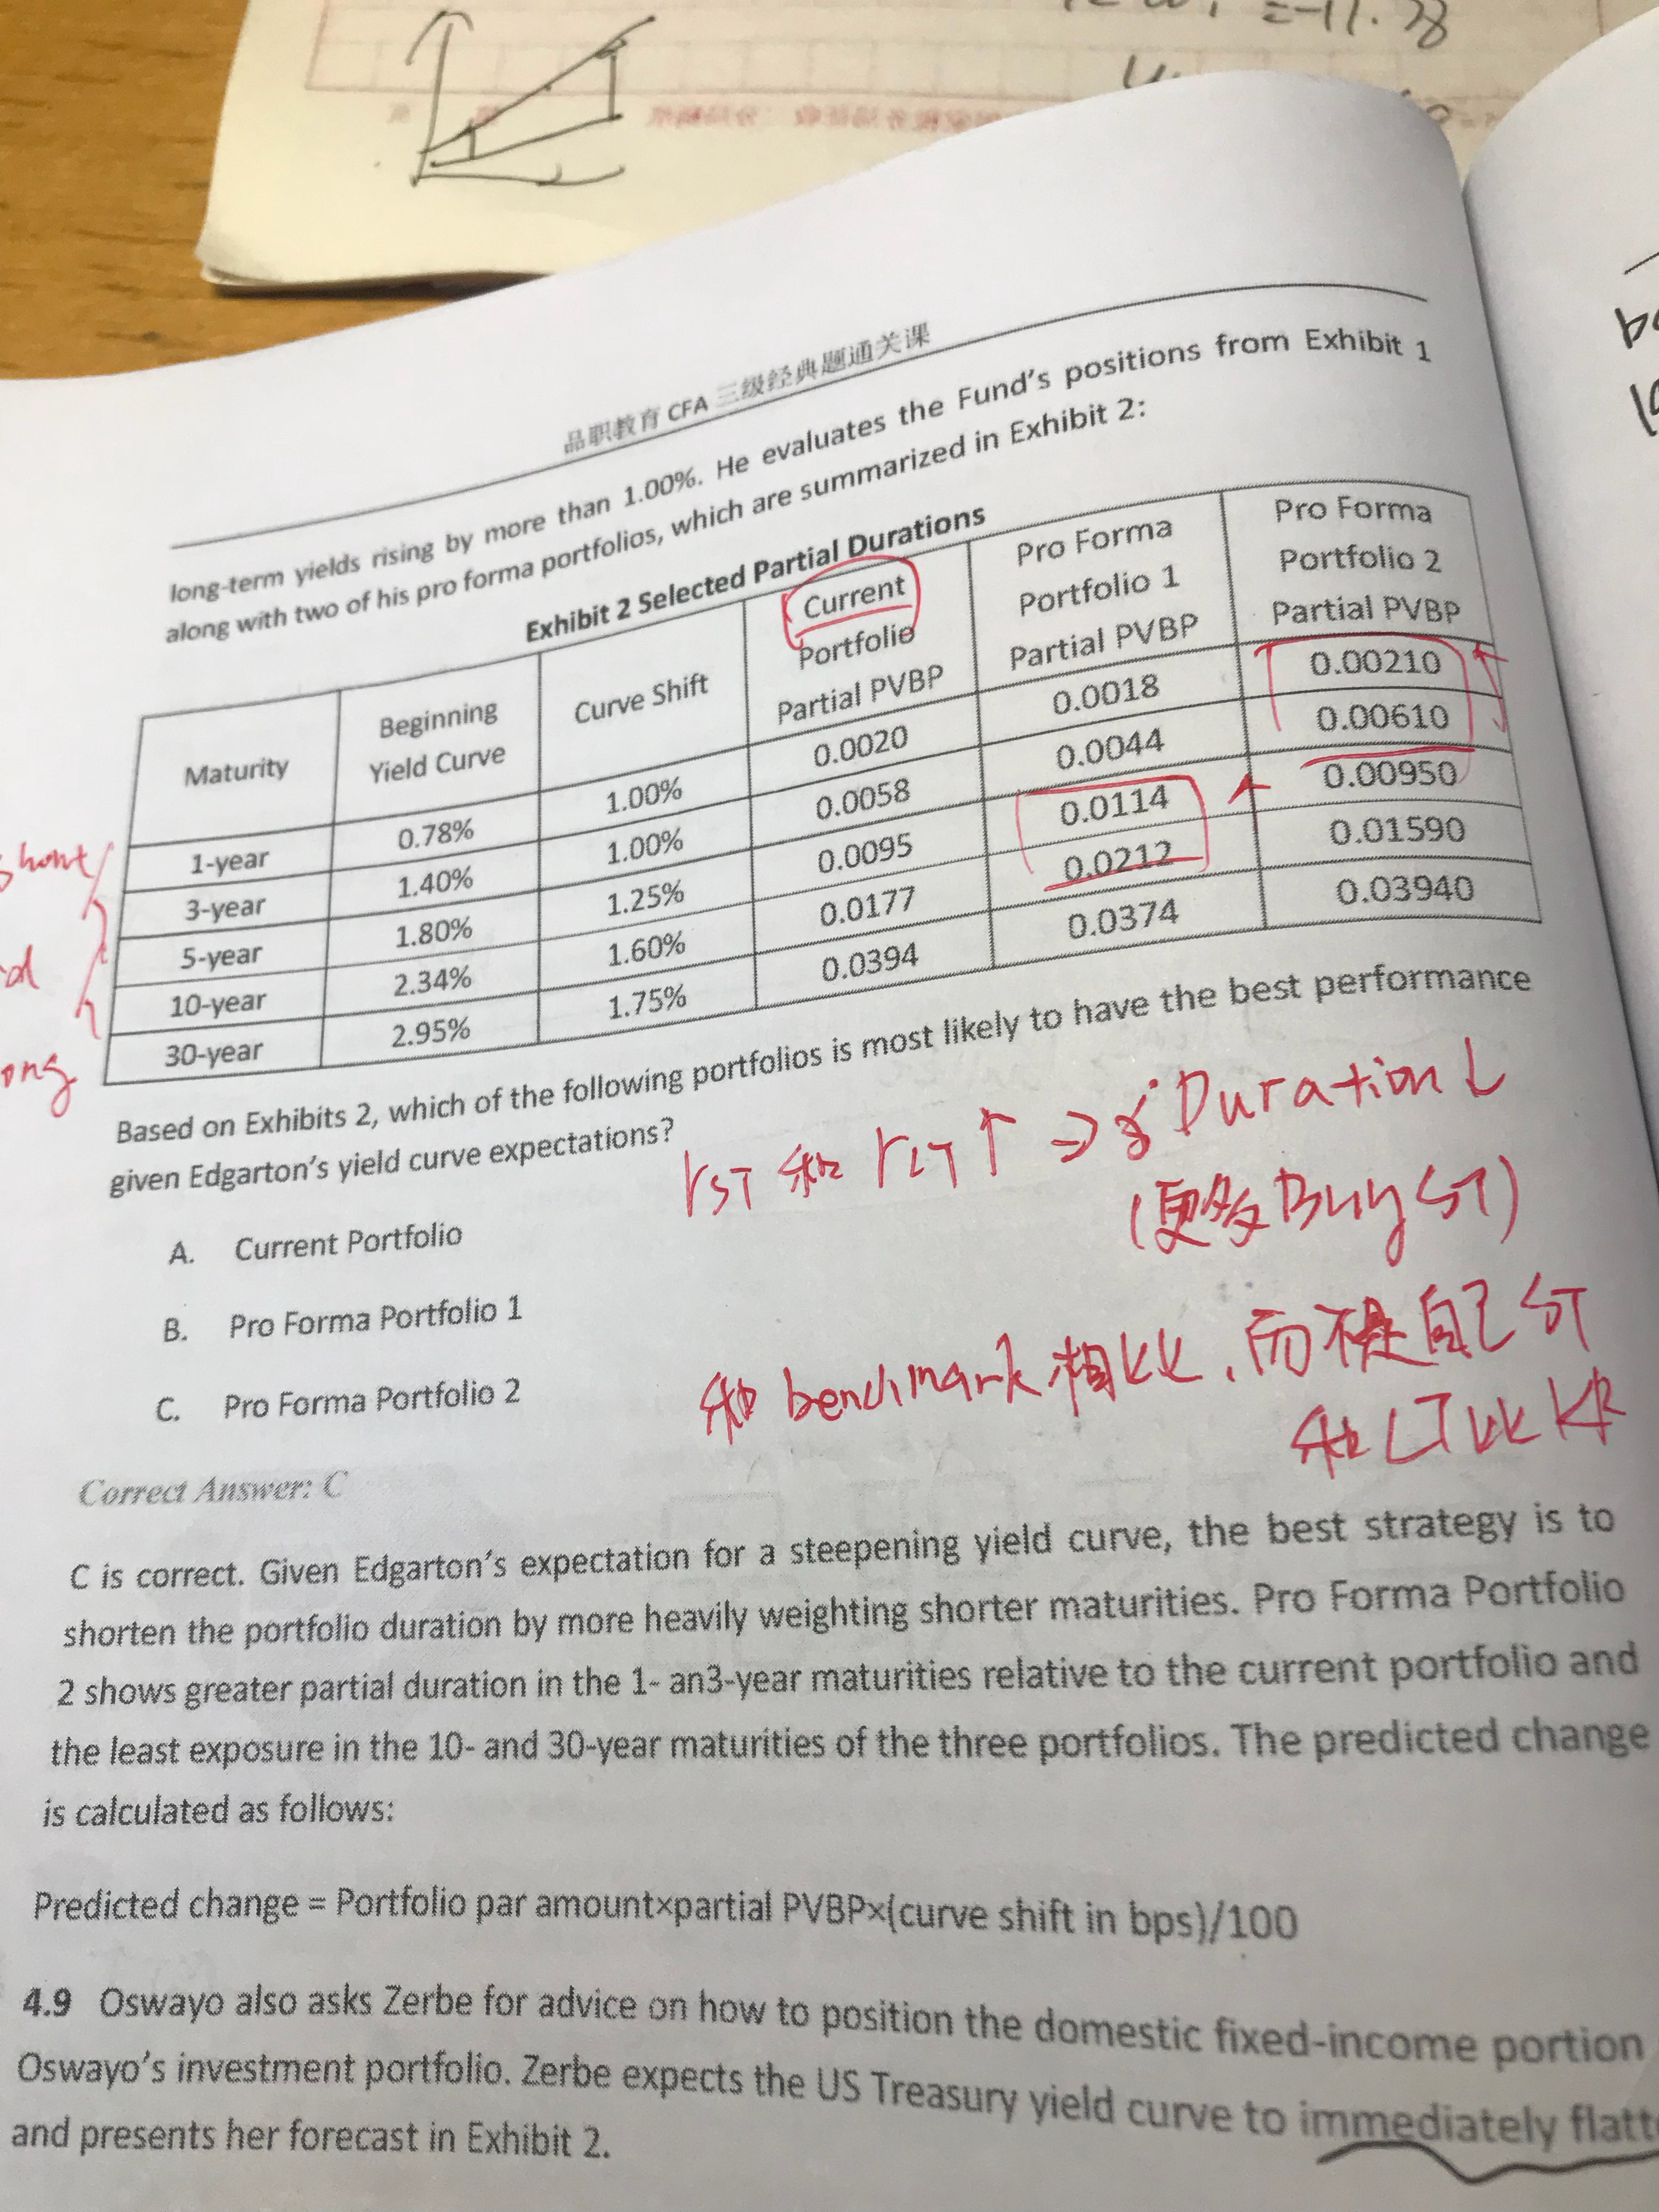 =-11.38
品职教育 CFA 三级经典题通关课
long-term yields rising by more than 1.00%. He evaluates the Fund's positions from Exhibit 1
along with two of his pro forma portfolios, which are summarized in Exhibit 2:
Exhibit 2 Selected Partial Durations
Maturity Beginning Yield Curve Curve Shift Current Portfolio Partial PVBP Pro Forma Portfolio 1 Partial PVBP Pro Forma Portfolio 2 Partial PVBP
1-year 0.78% 1.00% 0.0020 0.0018 0.00210
3-year 1.40% 1.00% 0.0058 0.0044 0.00610
5-year 1.80% 1.25% 0.0095 0.0114 0.00950
10-year 2.34% 1.60% 0.0177 0.0212 0.01590
30-year 2.95% 1.75% 0.0394 0.0374 0.03940
short
ong
Based on Exhibits 2, which of the following portfolios is most likely to have the best performance
given Edgarton's yield curve expectations?
rST 和 rLT ↑ ⇒ Duration ↓
(更多Buy ST)
A. Current Portfolio
B. Pro Forma Portfolio 1
C. Pro Forma Portfolio 2
和 benchmark 相比, 而不是自己 ST
和 LT 比
Correct Answer: C
C is correct. Given Edgarton's expectation for a steepening yield curve, the best strategy is to
shorten the portfolio duration by more heavily weighting shorter maturities. Pro Forma Portfolio
2 shows greater partial duration in the 1- an3-year maturities relative to the current portfolio and
the least exposure in the 10- and 30-year maturities of the three portfolios. The predicted change
is calculated as follows:
Predicted change = Portfolio par amount×partial PVBP×(curve shift in bps)/100
4.9 Oswayo also asks Zerbe for advice on how to position the domestic fixed-income portion
Oswayo's investment portfolio. Zerbe expects the US Treasury yield curve to immediately flatt
and presents her forecast in Exhibit 2.